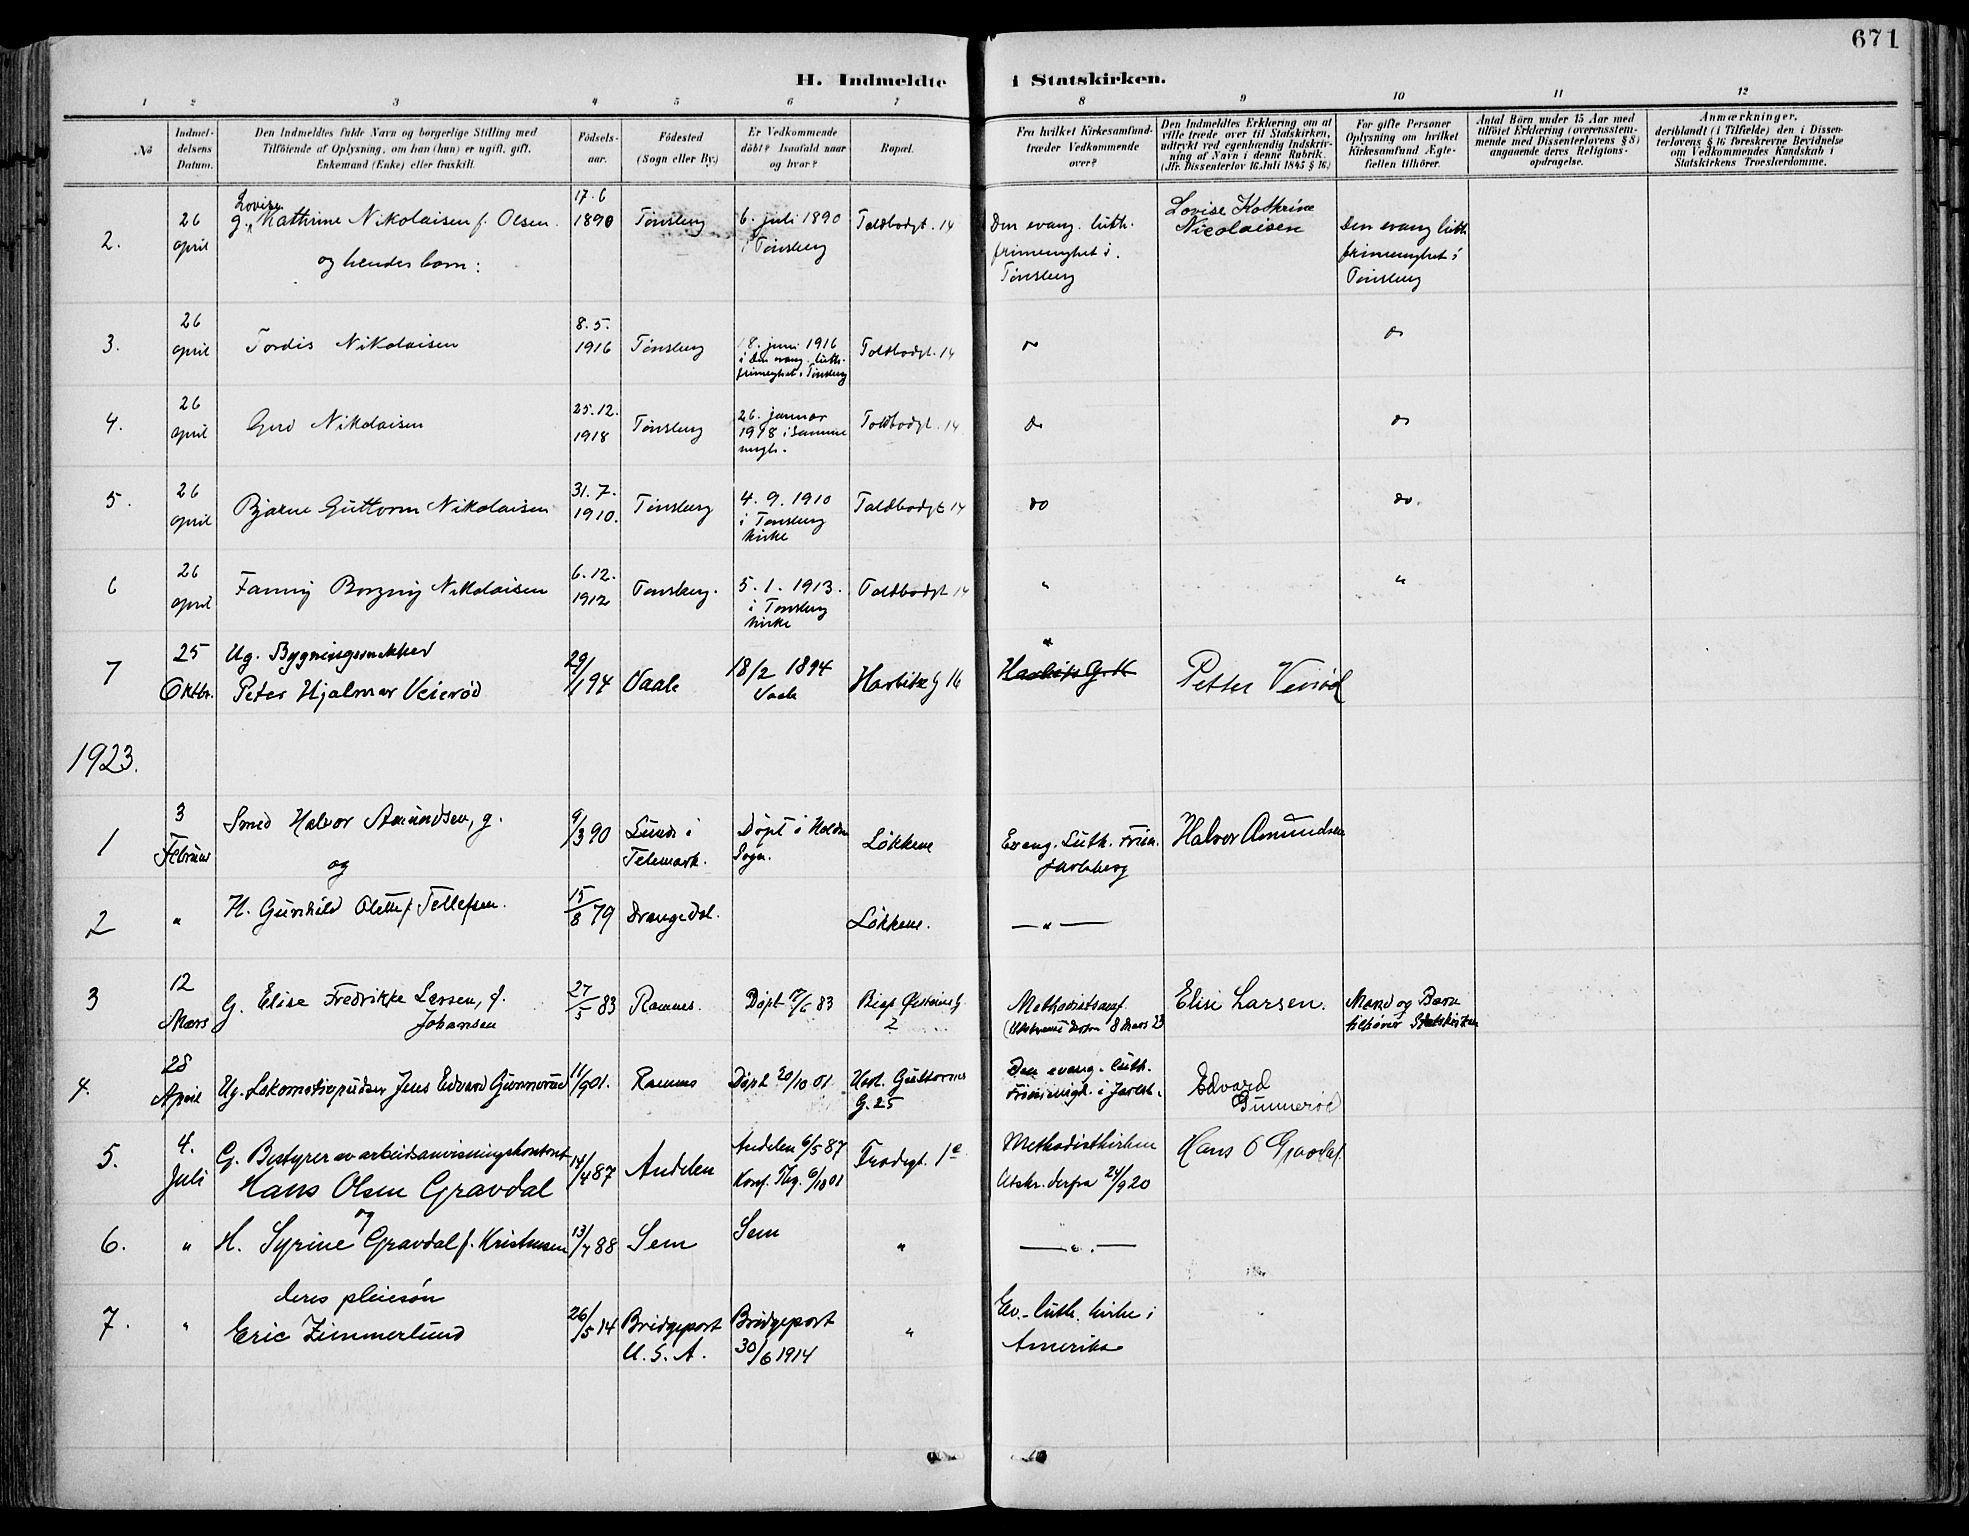 671
H. Indmeldte i Statskirken.
1 2 3 4 5 6 7 8 9 10 11 12
No
Indmel-
delsens
Datum.
Den Indmeldtes fulde Navn og borgerlige Stilling med
Tilföiende af Oplysning, om han (hun) er ugift, gift,
Enkemand (Enke) eller fraskilt.
Födsels-
aar.
Födested
(Sogn eller By.)
Er Vedkommende
döbt? Isaafald naar
og hvor?
Bopæl.
Fra hvilket Kirkesamfund
træder Vedkommende
over?
Den Indmeldtes Erklæring, om at
ville træde over til Statskirken,
udtrykt ved egenhændig Indskriv-
ning af Navn i denne Rubrik.
(Jfr. Dissenterlov 16 Juli 1845 § 16.)
For gifte Personer
Oplysning om hvilket
Kirkesamfund Ægte-
fællen tilhörer.
Antal Börn under 15 Aar med
tilföiet Erklæring (overensstem-
mende med Dissenterlovens § 8)
angaaende deres Religions-
opdragelse.
Anmærkninger,
deriblandt (i Tilfælde) den i Dissen-
terlovens § 16 foreskrevne Bevidnelse
om Vedkommendes Kundskab i
Statskirkens Troeslærdomme.
2.
26
april
Lovise
g. Kathrine Nikolaisen f. Olsen.
og hendes barn:
17.6
1890
Tönsberg
6. juli 1890
i Tönsberg
Toldbodgt. 14
Den evang. luth.
frimenighet i
Tönsberg
Lovise Kathrine
Nicolaisen
Den evang luth.
frimenighet i
Tönsberg
3.
26
april
Tordis Nikolaisen
8.5.
1916
Tönsberg
18. juni 1916
i den evang. luth.
frimenighet i Tönsberg
Toldbodgt. 14
do
do
4.
26
april
Gerd Nikolaisen
25.12.
1918
Tönsberg
26. januar
1918 i samme
mgh.
Toldbodgt. 14
do
do
5.
26
april
Bjarne Guttorm Nikolaisen
31.7.
1910.
Tönsberg
4.9.1910
i Tönsberg
kirke
Toldbodgt 14
do
do.
6
26
april
Fanny Borgny Nikolaisen
6.12.
1912
Tønsberg.
5.1.1913.
i Tønsberg
kirke
Toldbodgt 14
"
"
7
25
Oktbr.
Ug. Bygningssnekker
Peter Hjalmar Veierød
29/1 94
Vaale
18/2 1894
Vaale
Harbitz G 16
"
Petter Veiröd
1923.
1
3
Februar
Smed Halvor Amundsen, g.
og
9/3 90
Lunde i
Telemark.
Døpt i Holden
Sogn.
Løkkene
Evang. Luth. Frim.
Jarlsberg
Halvor Amundsen
2
"
H. Gunhild Olette f. Tellefsen.
15/8 79
Drangedal.
Løkkene.
— " —
3
12
Mars
G. Elise Fredrikke Larsen, f.
Johansen
27/5 83
Ramnes.
Døpt 17/6 83
2
Methodistsamf
(Utskrevet derfra 8 Mars 23
Elise Larsen.
Mand og Barn
tilhører Statskirken
4.
28
April
Ug. Lokomotivpudser Jens Edvard Gunnerød
11/9 01.
Ramnes
Døpt 20/10 01
Hert. Guttorms
G. 25
Den evang. luth.
Frimenigh. i Jarlsb.
Edvard
Gunnerød
5.
4.
Juli
G. Bestyrer av arbeidsanvisningskontoret
Hans Olsen Gravdal
og
14/4 87
Andelen
Andelen 6/5 87
Konf. Tbg. 6/10 01
Frodegt. 1e
Methodistkirken
Utskr. derfra 24/9 20
Hans O Gravdal
6.
"
H. Syrine Gravdal f. Kristensen
13/7 88
Sem
Sem
"
— " —
7.
"
deres pleiesøn
Eric Zimmerlund
26/5 14
Bridgeport
U.S.A.
Bridgeport
30/6 1914
"
Ev.-luth. kirke i
Amerika